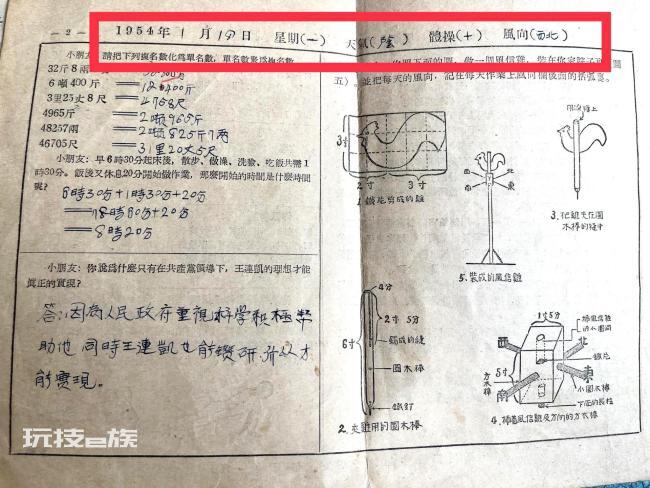 —2— 1954年1月18日 星期(一) 天氣(陰) 體操(十) 風向(西北)
小朋友:請把下列複名數化爲單名數,單名數聚爲複名數
32斤8兩
6噸400斤 ══12400斤
3里25丈8尺 ══4758尺
4965斤 ══2噸965斤
48257兩 ══
46705尺 ══31里20丈5尺
小朋友:早6時30分起床後,散步、做操、洗臉、吃飯共需1
時30分。飯後又休息20分開始做作業,那麼開始的時間是什麼時間
呢?
6時30分+1時30分+20分
══8時20分
小朋友:你說爲什麼只有在共產黨領導下,王連凱的理想才能
眞正的實現?
答:因為人民政府重視科學積極幫
助他 同時王連凱也能鑽研,所以才
能實現。
五)。並把每天的風向,記在每天作業上風向欄後面的括弧裏。
3寸
2寸 3寸
1.鐵片剪成的雞
3.把雞夾在圓
木棒的縫中
西 北
南 東
5.裝成的風信雞
4分
2寸5分
6寸
鋸成的縫
圓木棒
鐵釘
2.夾雞用的圓木棒
1寸5分
插風信雞
的小圓洞
西 北
5寸
方木棒
鐵片
南 東
小圓木棒
下面的長柱
4.插着風信雞及方向的方木棒
玩技e族